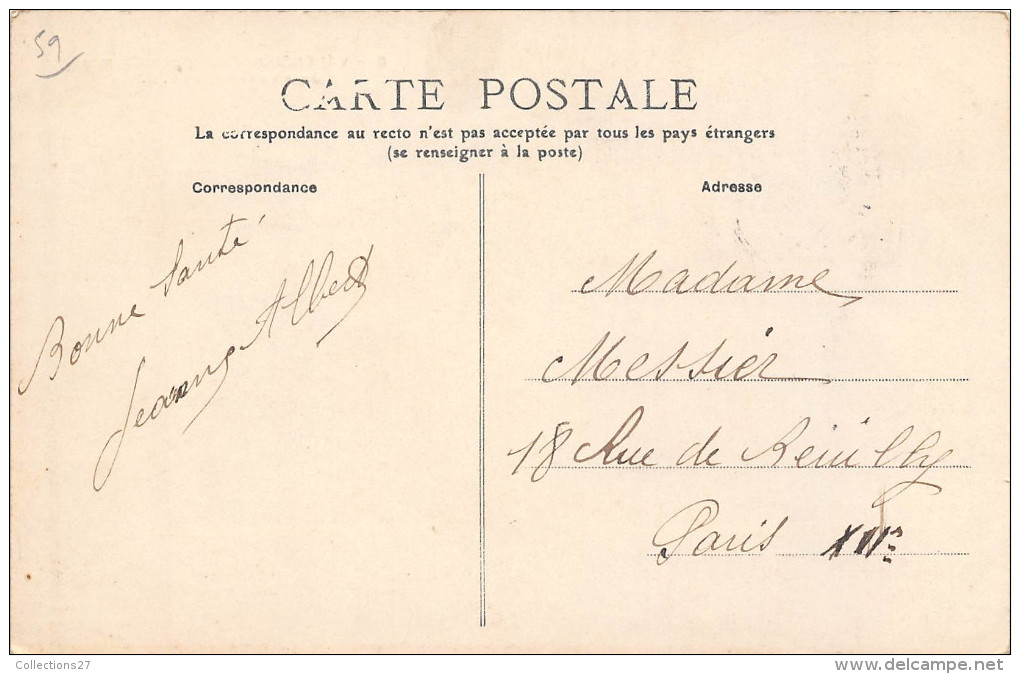 59
CARTE POSTALE
La correspondance au recto n'est pas acceptée par tous les pays étrangers
(se renseigner à la poste)
Correspondance
Adresse
Bonne Santé
Albert
Madame
Messier
18 Rue de Reuilly
Paris XIIe
Collections27
www.delcampe.net